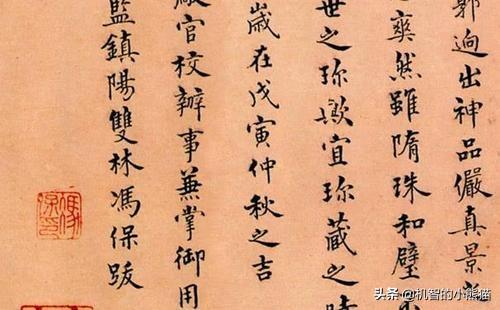 郭逈出神品儼真景之
爽然雖隋珠和璧不
世之珎歟宜珎藏之時
歲在戊寅仲秋之吉
廠官校辦事兼掌御用
監鎮陽雙林馮保跋
头条 @机智的小熊猫